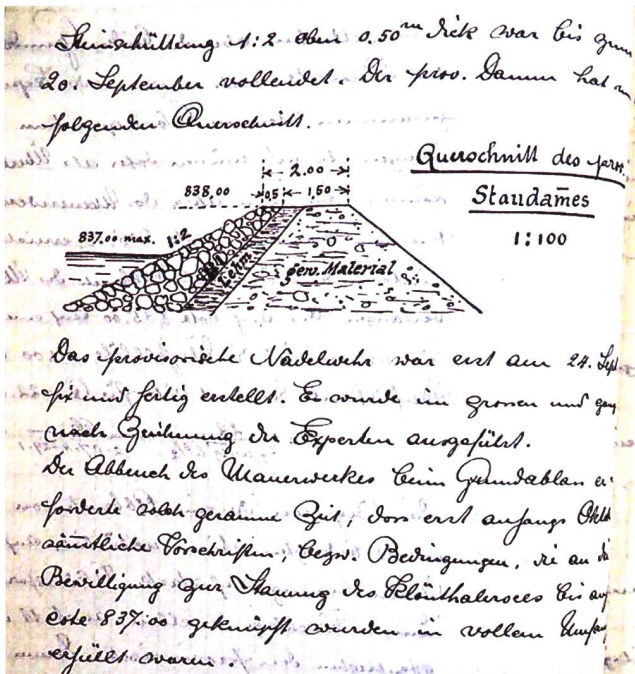 Steinschüttung 1:2 oben 0.50 m dick war bis zum
20. September vollendet. Der prov. Damm hat
folgenden Querschnitt.
Querschnitt des prov.
Staudam̄es
1:100
2.00
838,00 0,5 1,50
837.00 max. 1:2
Lehm gew. Material
Das provisorische Nadelwehr war erst am 24. Sept
fix und fertig erstellt. Es wurde im grossen und ganz
nach Zeichnung der Experten ausgeführt.
Der Abbruch des Mauerwerkes beim Grundablass er-
forderte solch geraume Zeit, dass erst anfangs Okto
sämtliche Vorschriften, bezw. Bedingungen, die an die
Bewilligung zur Stauung des Klönthalersees bis auf
cote 837.00 geknüpft wurden in vollem Umfang
erfüllt waren.